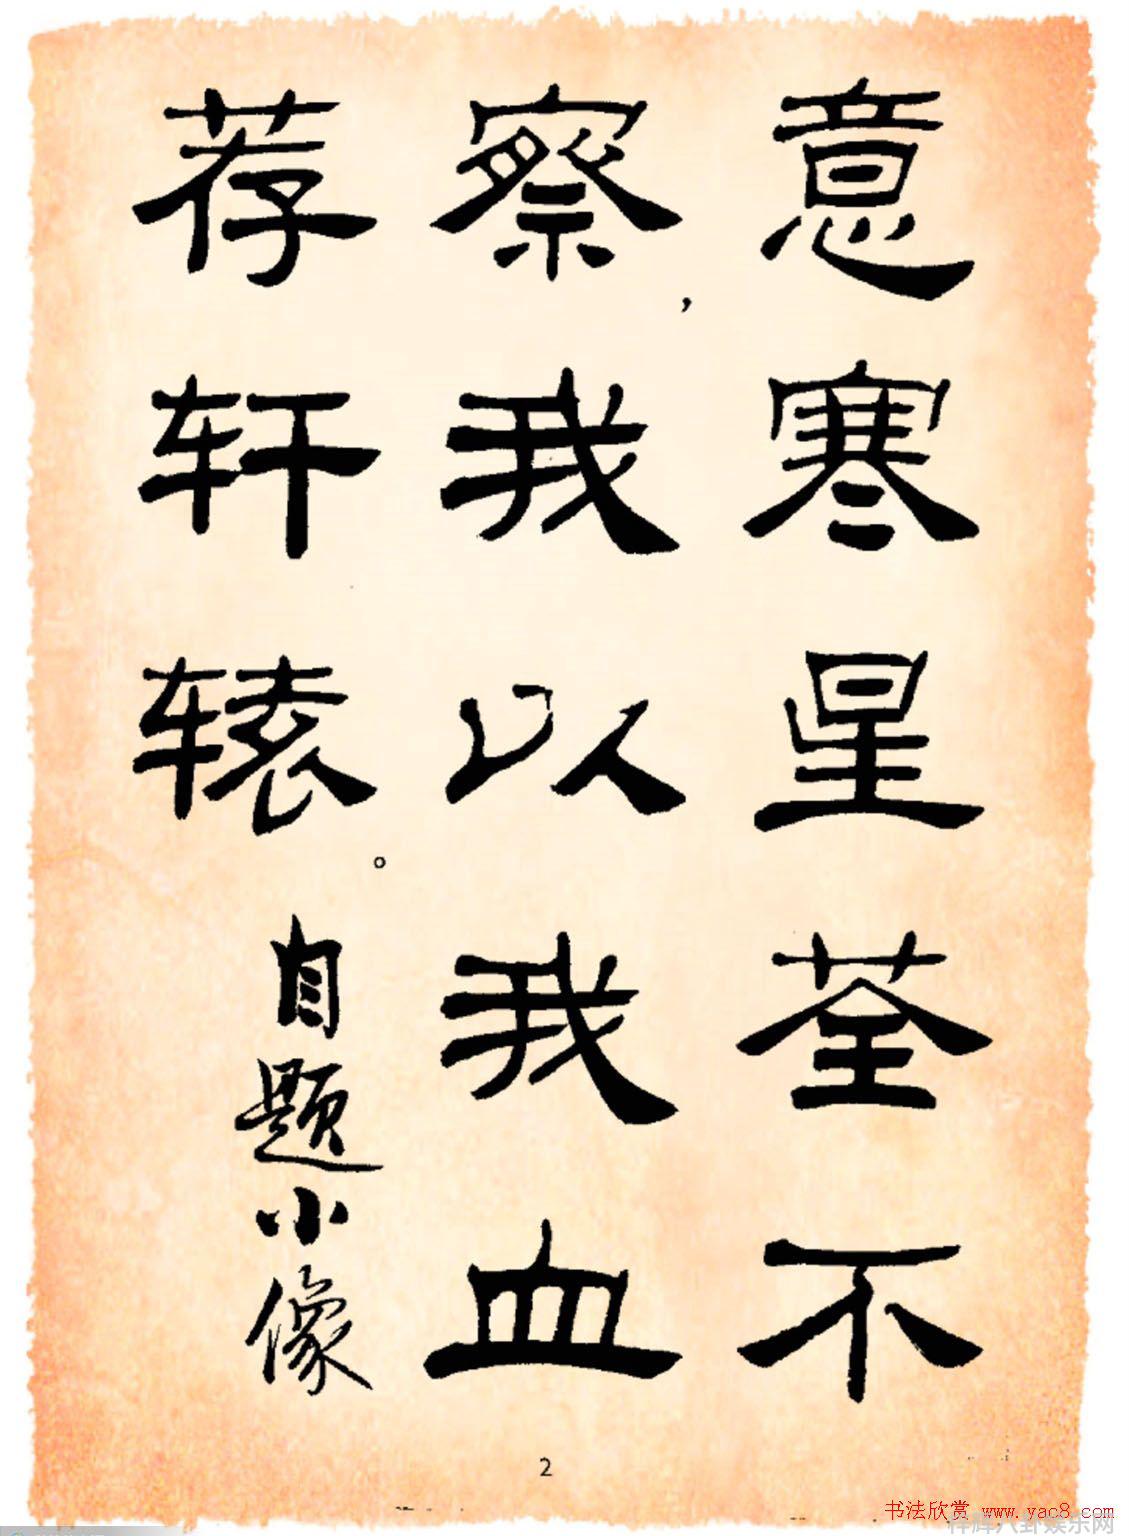 意寒星荃不
察，我以我血
荐轩辕。自题小像
2
书法欣赏 www.yac8.com